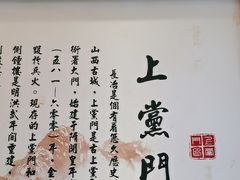 上黨門
長治是個有着悠久歷史
山西古城。上黨門是古上黨
衙署大門。始建于隋開皇年
（五八一—六〇〇年。金
毀於兵火。現存的上黨門和
側鐘樓是明洪武年間重建。